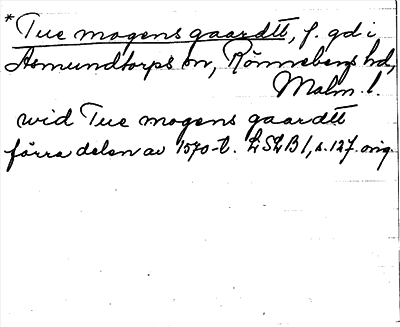 *Tue mogens gaardtt, f. gd i
Asmundtorps sn, Rönnebergs hd,
Malm. l.
wid Tue mogens gaardtt
förra delen av 1570-t. LSLB 1, s. 127. orig.